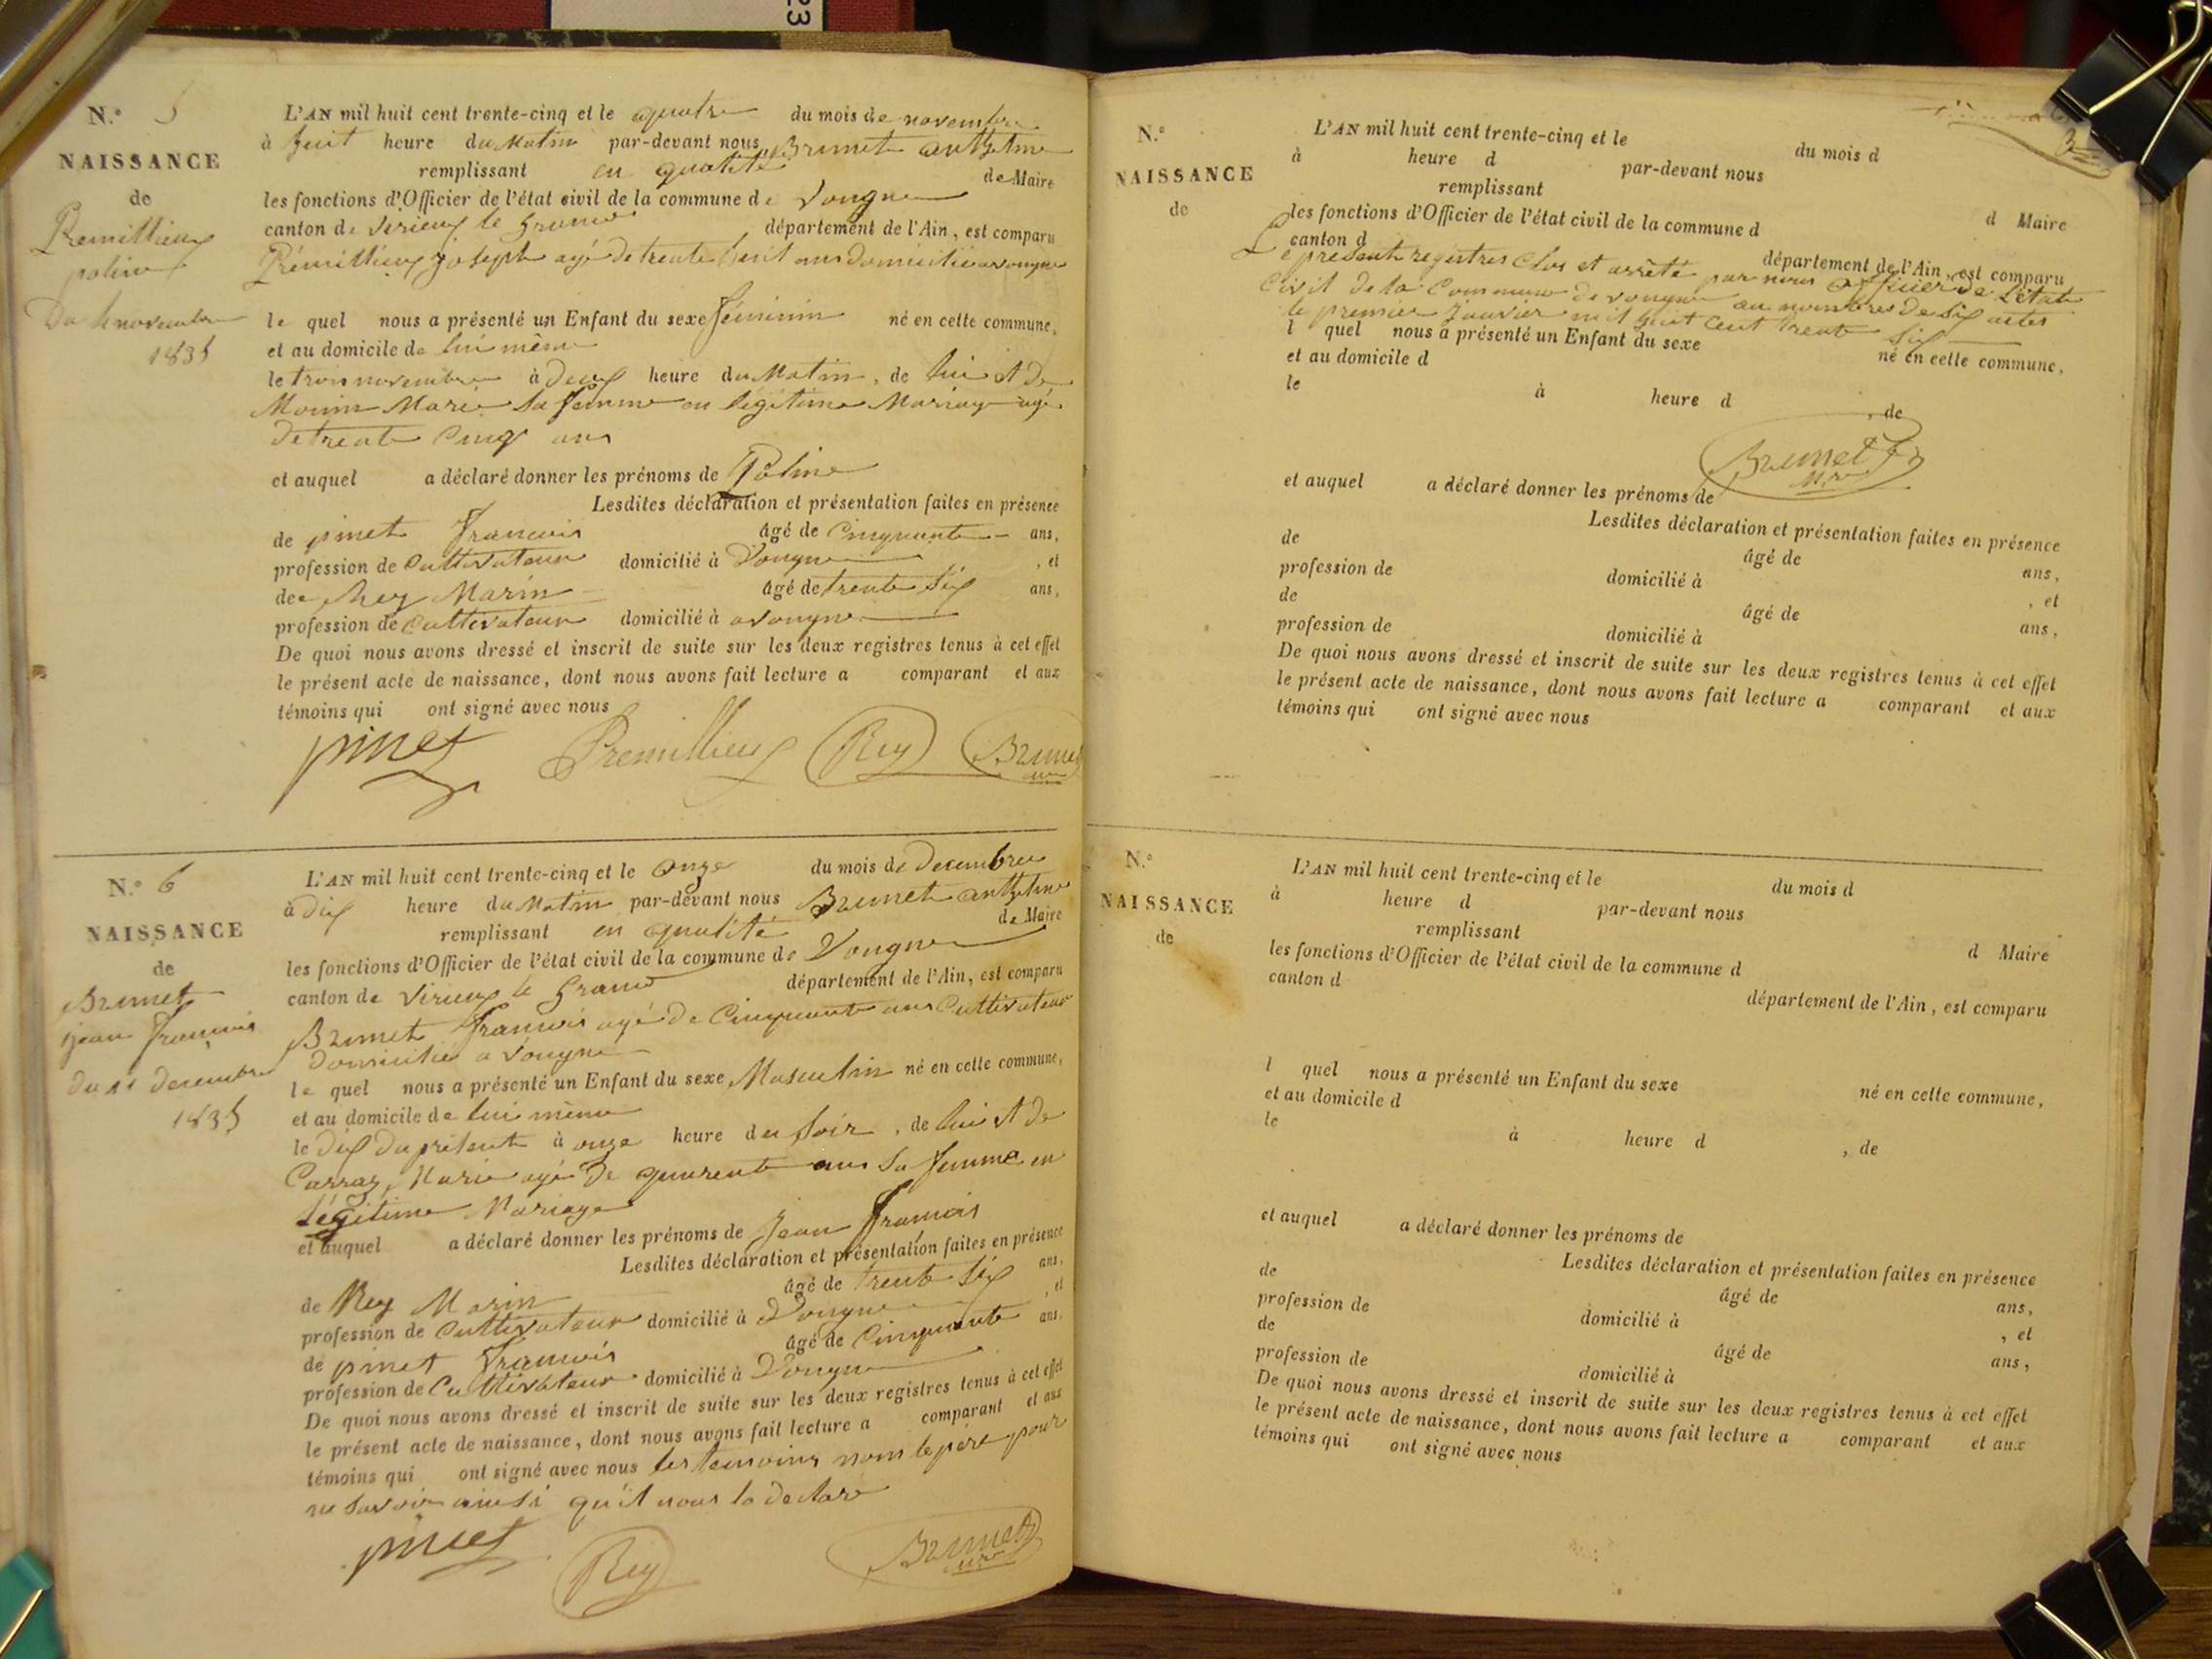 23
N.° 5
NAISSANCE
de
Premillieux
poline
Du 4 novembre
1835
L'AN mil huit cent trente-cinq et le quatre du mois de novembre
à huit heure du Matin par-devant nous Brunet anthelme
remplissant en qualité de Maire
les fonctions d'Officier de l'état civil de la commune de Vongne
canton de Virieux le Grand département de l'Ain, est comparu
Prémillieux joseph agé de trente huit ans domicilié a vongne
le quel nous a présenté un Enfant du sexe féminin né en cette commune,
et au domicile de lui même
le trois novembre à deux heure du Matin, de lui et de
Monin Marie sa femme en légitime Mariage agé
de trente cinq ans
et auquel a déclaré donner les prénoms de Poline
Lesdites déclaration et présentation faites en présence
de pinet francois âgé de Cinquante ans,
profession de Cultivateur domicilié à Vongne, et
de Rey Marin âgé de trente six ans,
profession de Cultivateur domicilié à a vongne
De quoi nous avons dressé et inscrit de suite sur les deux registres tenus à cet effet
le présent acte de naissance, dont nous avons fait lecture a comparant et aux
témoins qui ont signé avec nous
pinet Premillieux Rey Brunet
N.° 6
NAISSANCE
de
Brunet
jean francois
du 11 decembre
1835
L'AN mil huit cent trente-cinq et le onze du mois de decembre
à dix heure du Matin par-devant nous Brunet anthelme
remplissant en qualité de Maire
les fonctions d'Officier de l'état civil de la commune de Vongne
canton de Virieux le Grand département de l'Ain, est comparu
Brunet francois agé de Cinquante ans Cultivateur
Domicilié a Vongne
le quel nous a présenté un Enfant du sexe Masculin né en cette commune,
et au domicile de lui même
le dix du présent à onze heure du soir, de lui et de
Carraz Marie agé de quarente ans sa femme en
légitime Mariage
et auquel a déclaré donner les prénoms de Jean francois
Lesdites déclaration et présentation faites en présence
de Rey Marin âgé de trente six ans,
profession de Cultivateur domicilié à Vongne, et
de pinet francois âgé de Cinquante ans,
profession de Cultivateur domicilié à Vongne
De quoi nous avons dressé et inscrit de suite sur les deux registres tenus à cet effet
le présent acte de naissance, dont nous avons fait lecture a comparant et aux
témoins qui ont signé avec nous les temoins nom le pere pour
ne savoir ainsi qu'il nous la declaré
pinet Rey Brunet
N.°
NAISSANCE
de
L'AN mil huit cent trente-cinq et le du mois d
à heure d par-devant nous
remplissant d Maire
les fonctions d'Officier de l'état civil de la commune d
canton d département de l'Ain, est comparu
Le présent registres Clos et arrêté par nous officier de l'état
Civil de la Commune de vongne au nombres de six actes
le premier Janvier mil huit cent trente six
l quel nous a présenté un Enfant du sexe né en cette commune,
et au domicile d
le à heure d , de
Brunet
et auquel a déclaré donner les prénoms de
Lesdites déclaration et présentation faites en présence
de âgé de ans,
profession de domicilié à , et
de âgé de ans,
profession de domicilié à
De quoi nous avons dressé et inscrit de suite sur les deux registres tenus à cet effet
le présent acte de naissance, dont nous avons fait lecture a comparant et aux
témoins qui ont signé avec nous
N.°
NAISSANCE
de
L'AN mil huit cent trente-cinq et le du mois d
à heure d par-devant nous
remplissant d Maire
les fonctions d'Officier de l'état civil de la commune d
canton d département de l'Ain, est comparu
l quel nous a présenté un Enfant du sexe né en cette commune,
et au domicile d
le à heure d , de
et auquel a déclaré donner les prénoms de
Lesdites déclaration et présentation faites en présence
de âgé de ans,
profession de domicilié à , et
de âgé de ans,
profession de domicilié à
De quoi nous avons dressé et inscrit de suite sur les deux registres tenus à cet effet
le présent acte de naissance, dont nous avons fait lecture a comparant et aux
témoins qui ont signé avec nous